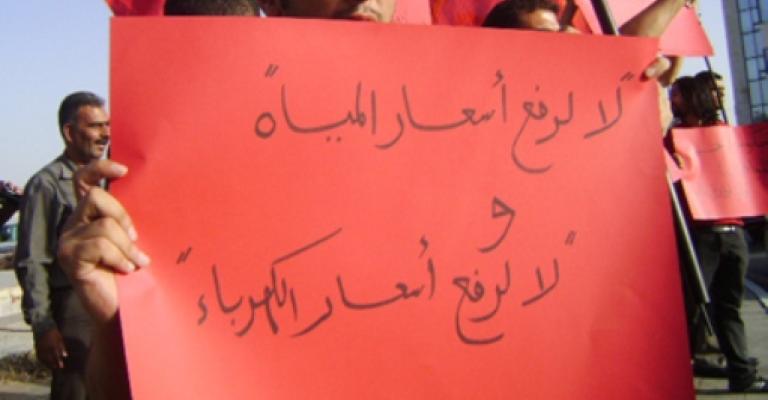 "لا لرفع أسعار المياه"
و
"لا لرفع أسعار الكهرباء"